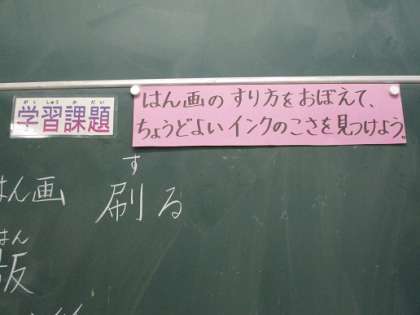 がくしゅうかだい
学習課題
はん画のすり方をおぼえて、
ちょうどよいインクのこさを見つけよう。
はん画
す
刷る
はん
版